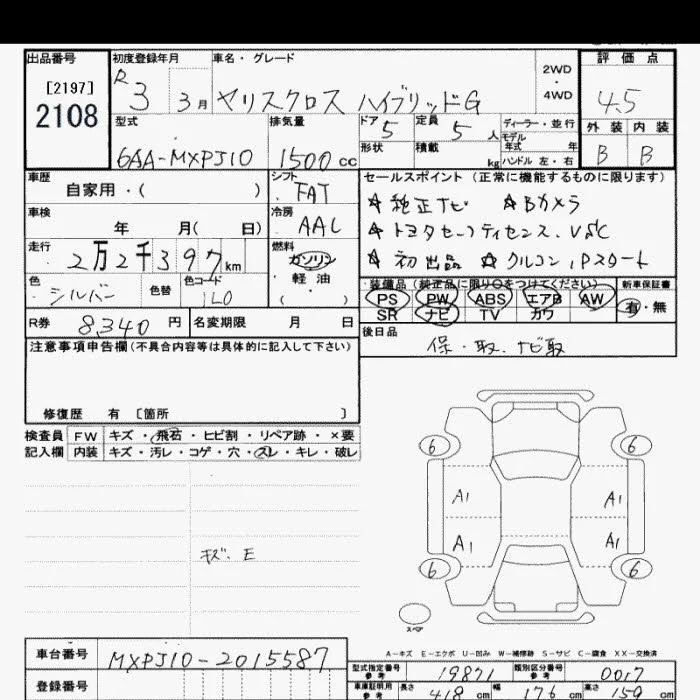 出品番号 初度登録年月 車名・グレード 2WD・4WD 評価点
[2197]
2108
R3 3月 ヤリスクロス ハイブリッドG 4.5
型式 排気量 ドア 定員 ディーラー・並行 外装 内装
6AA-MXPJ10 1500cc 5 5人 モデル年式 年 B B
形状 積載 kg ハンドル 左・右
車歴 シフト セールスポイント(正常に機能するものに限ります)
自家用・( ) FAT ☆純正ナビ ☆Bカメラ
車検 冷房 ☆トヨタセーフティセンス、VSC
年 月( 日) AAC ☆初出品 ☆クルコン、Pスタート
走行 燃料
2万2千397km ガソリン・軽油・( )
色 色替 色コード 装備品(純正品に限り○をつけてください) 新車保証書
シルバー 1L0 PS PW ABS エアB AW 有・無
SR ナビ TV カワ
R券 8340円 名変期限 月 日 後日品
注意事項申告欄(不具合内容等は具体的に記入して下さい) 保・取、ナビ取
修復歴 有 [箇所 ]
検査員 FW キズ・飛石・ヒビ割・リペア跡・×要
記入欄 内装 キズ・汚レ・コゲ・穴・スレ・キレ・破レ
6 6
A1 A1
A1 A1
キズ、E
6 6
スペア
A-キズ E-エクボ U-凹み W-補修跡 S-サビ C-腐食 XX-交換済
車台番号 MXPJ10-2015587
型式指定番号 参考 19871 類別区分番号 参考 0017
登録番号 車庫証明用 参考 長さ 418cm 幅 176cm 高さ 159cm